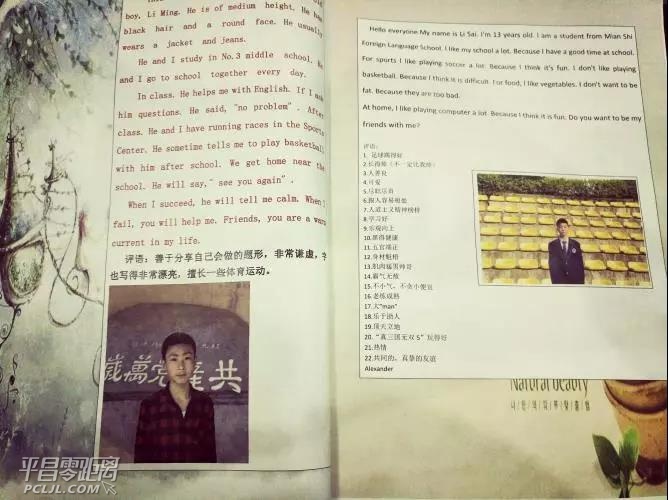 boy, Li Ming. He is of medium height. He has
black hair and a round face. He usually
wears a jacket and jeans.
He and I study in No.3 middle school. He
and I go to school together every day.
In class. He helps me with English. If I ask
him questions. He said, "no problem". After
class. He and I have running races in the Sports
Center. He sometime tells me to play basketball
with him after school. We get home near the
school. He will say," see you again".
When I succeed, he will tell me calm. When I
fail, you will help me. Friends, you are a warm
current in my life.
评语：善于分享自己会做的题形，非常谦虚，字
也写得非常漂亮，擅长一些体育运动。
共产党万岁
Hello everyone My name is Li Sai. I'm 13 years old. I am a student from Mian Shi
Foreign Language School. I like my school a lot. Because I have a good time at school.
For sports I like playing soccer a lot. Because I think it's fun. I don't like playing
basketball. Because I think it is difficult. For food, I like vegetables. I don't want to be
fat. Because they are too bad.
At home, I like playing computer a lot. Because I think it is fun. Do you want to be my
friends with me?
评语：
1. 足球踢得好
2.长得帅（不一定比我帅）
3.人善良
4.可爱
5.尽职尽责
6.跟人容易相处
7.人道主义精神榜样
8.学习好
9.乐观向上
10.抓得健康
11.五官端正
12.身材魁梧
13.肌肉猛男帅哥
14.霸气无敌
15.不小气，不贪小便宜
16.老练成熟
17.大"man"
18.乐于助人
19.顶天立地
20."真三国无双 5"玩得好
21.热情
22.共同的，真挚的友谊
Alexander
Natural beauty
平昌零距离
PCLJL.COM